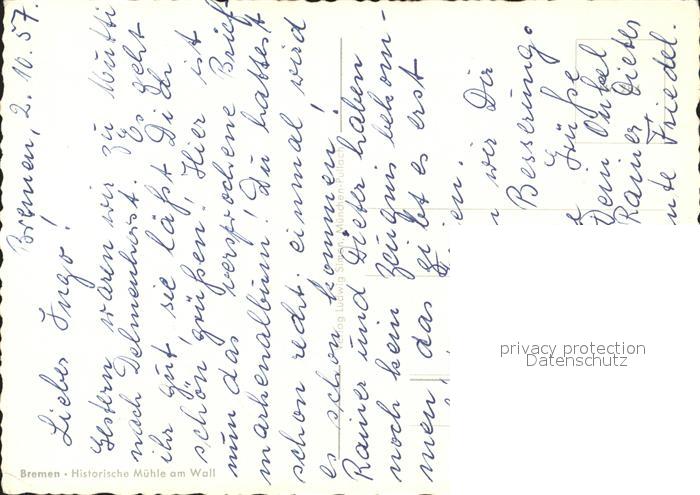 Bremen, 2. 10. 57.
Lieber Ingo!
Gestern waren wir zu Mutti
nach Delmenhorst. Es geht
ihr gut, sie läßt Dich
schön grüßen. Hier ist
nun das versprochene Brief
markenalbum! Du hattest
schon recht: einmal wird
es schon kommen!
Rainer und Dieter haben
noch kein Zeugnis bekom-
men, das gibt es erst
wir Dir
Besserung.
Grüße
Dein Onkel
Rainer Dieter
Friedel.
Verlag Ludwig Simon, München-Pullach
Bremen · Historische Mühle am Wall
privacy protection
Datenschutz